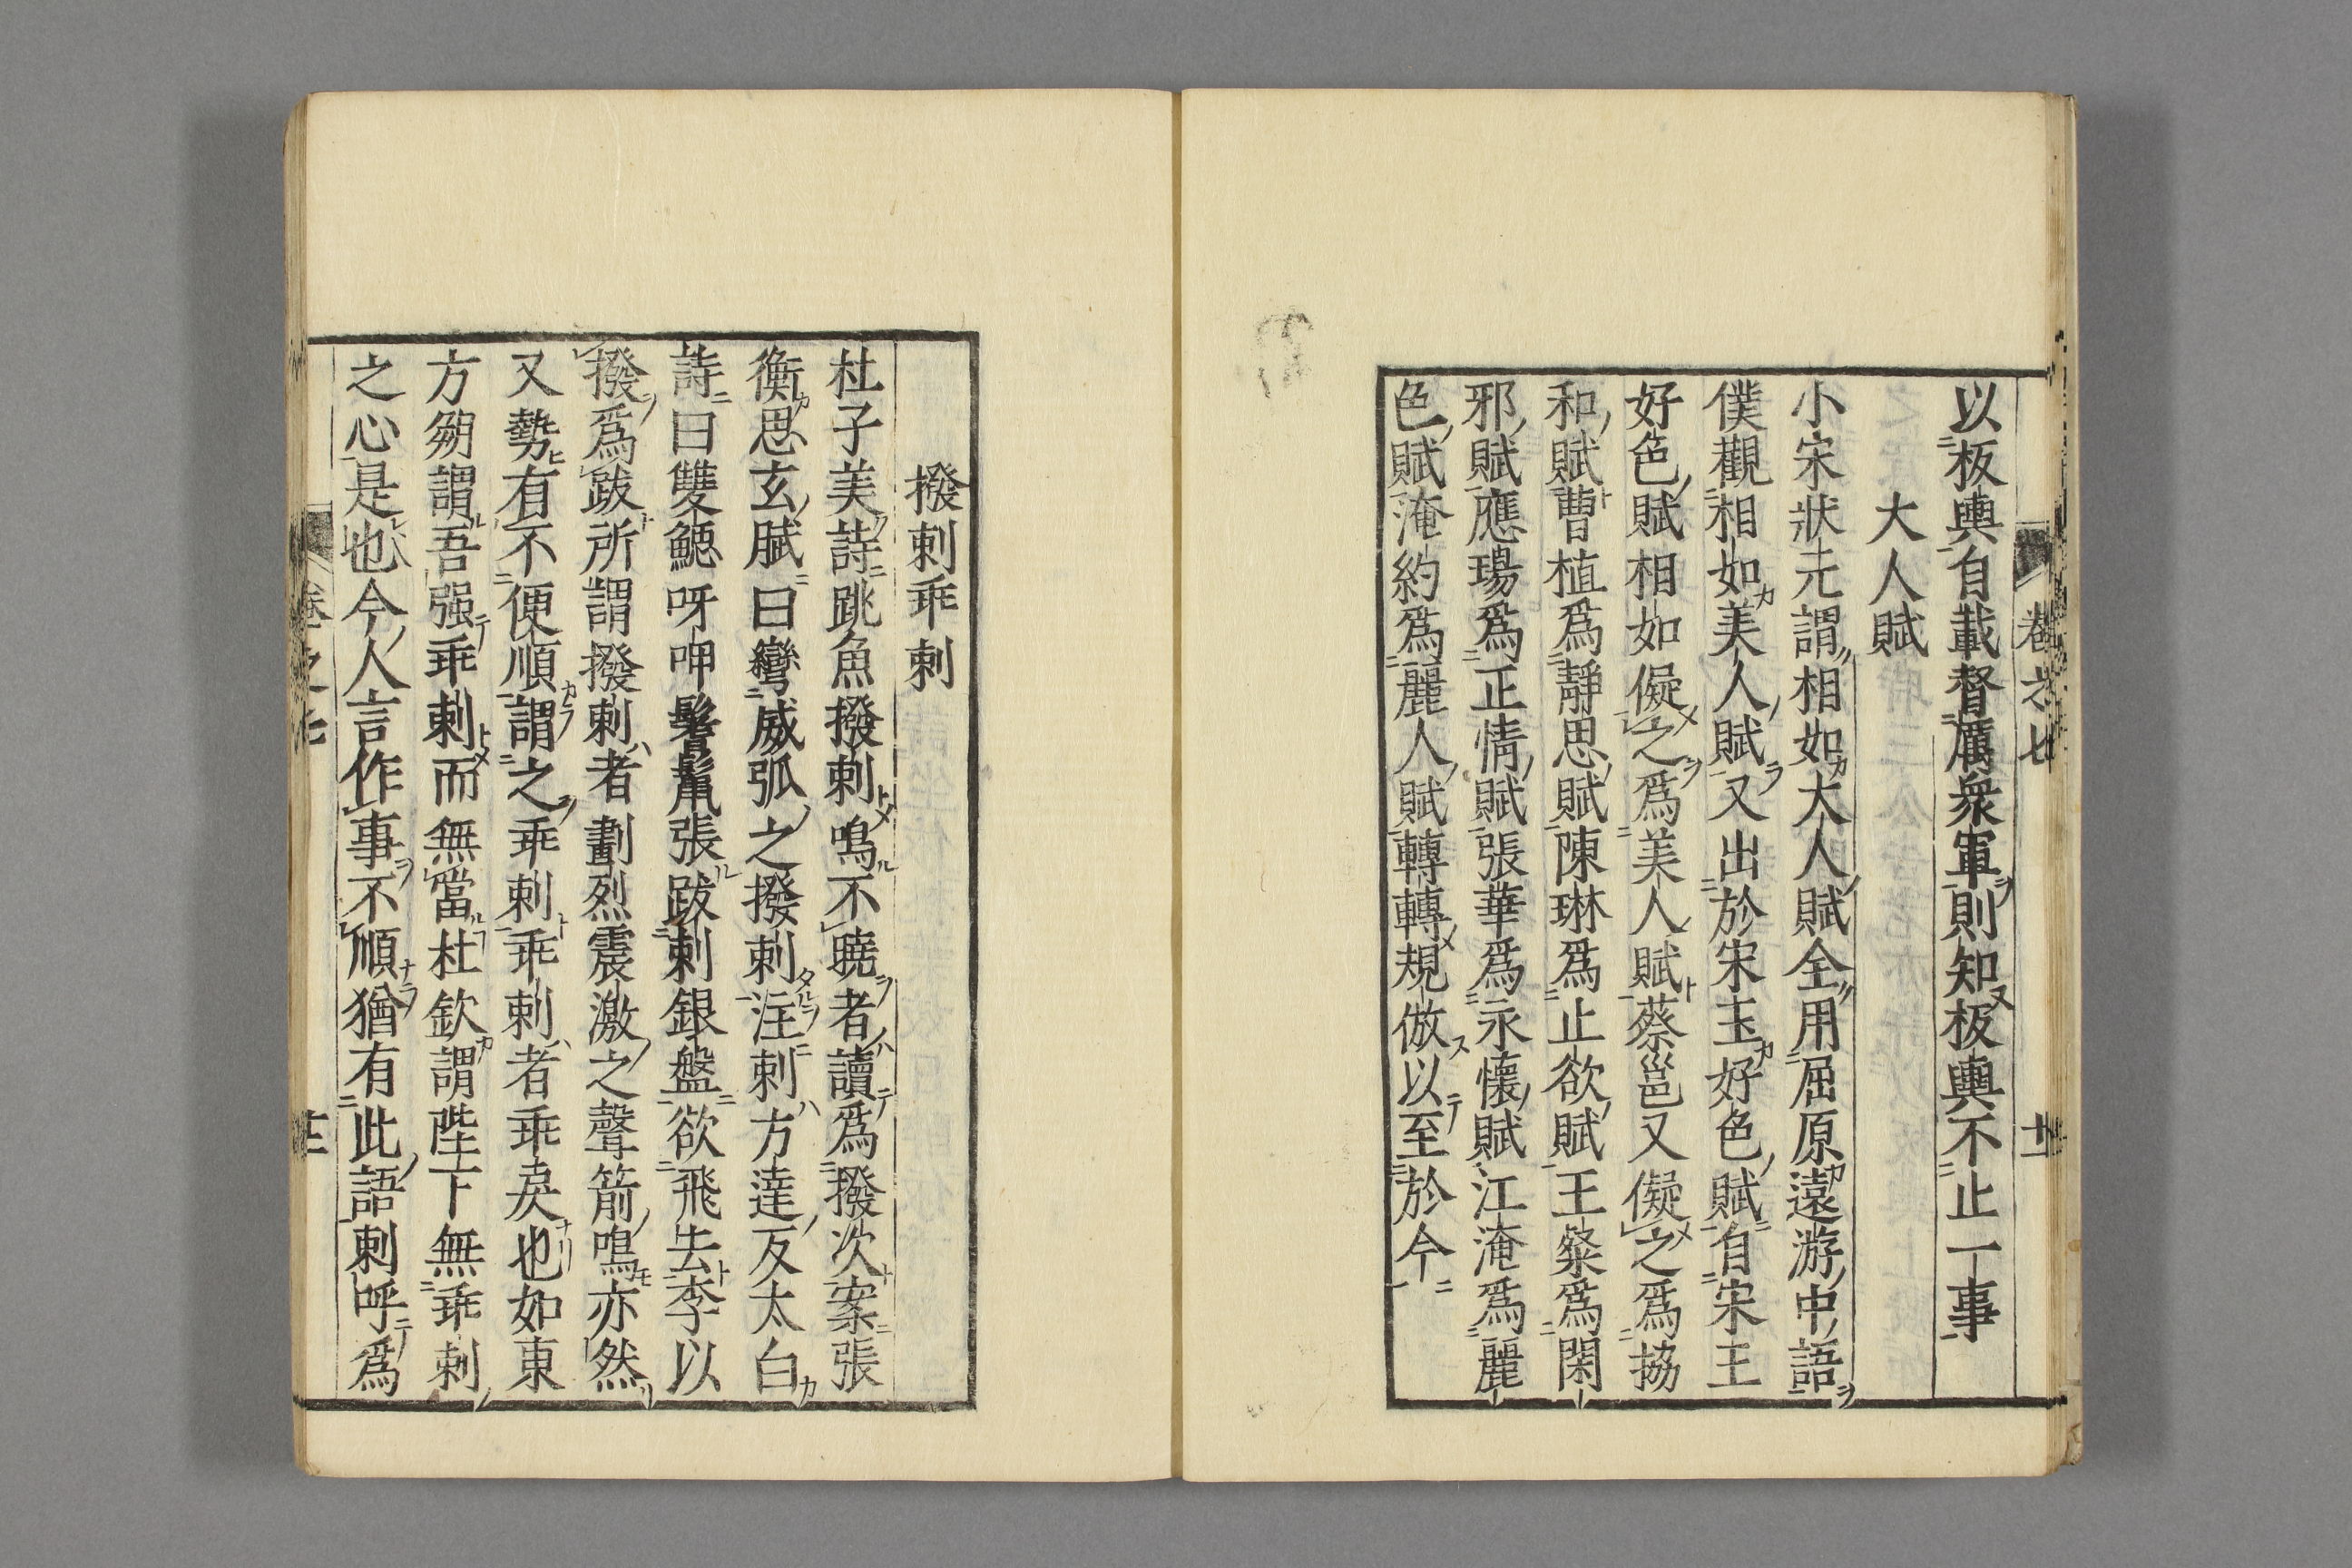 卷之七 十二
以板輿自載督厲衆軍則知板輿不止一事
大人賦
小宋狀元謂相如大人賦全用屈原遠游中語
僕觀相如美人賦又出於宋玉好色賦自宋玉
好色賦相如儗之爲美人賦蔡邕又儗之爲協
和賦曹植爲靜思賦陳琳爲止欲賦王粲爲閑
邪賦應瑒爲正情賦張華爲永懷賦江淹爲麗
色賦淹約爲麗人賦轉轉規倣以至於今
撥剌乖剌
杜子美詩跳魚撥剌鳴不曉者讀爲撥次案張
衡思玄賦曰彎威弧之撥剌注剌方達反太白
詩曰雙鰓呀呷鬐鬣張跋剌銀盤欲飛去李以
撥爲跋所謂撥剌者劃烈震激之聲箭鳴亦然
又勢有不便順謂之乖剌乖剌者乖戾也如東
方朔謂吾强乖剌而無當杜欽謂陛下無乖剌
之心是也今人言作事不順猶有此語剌呼爲
卷之七